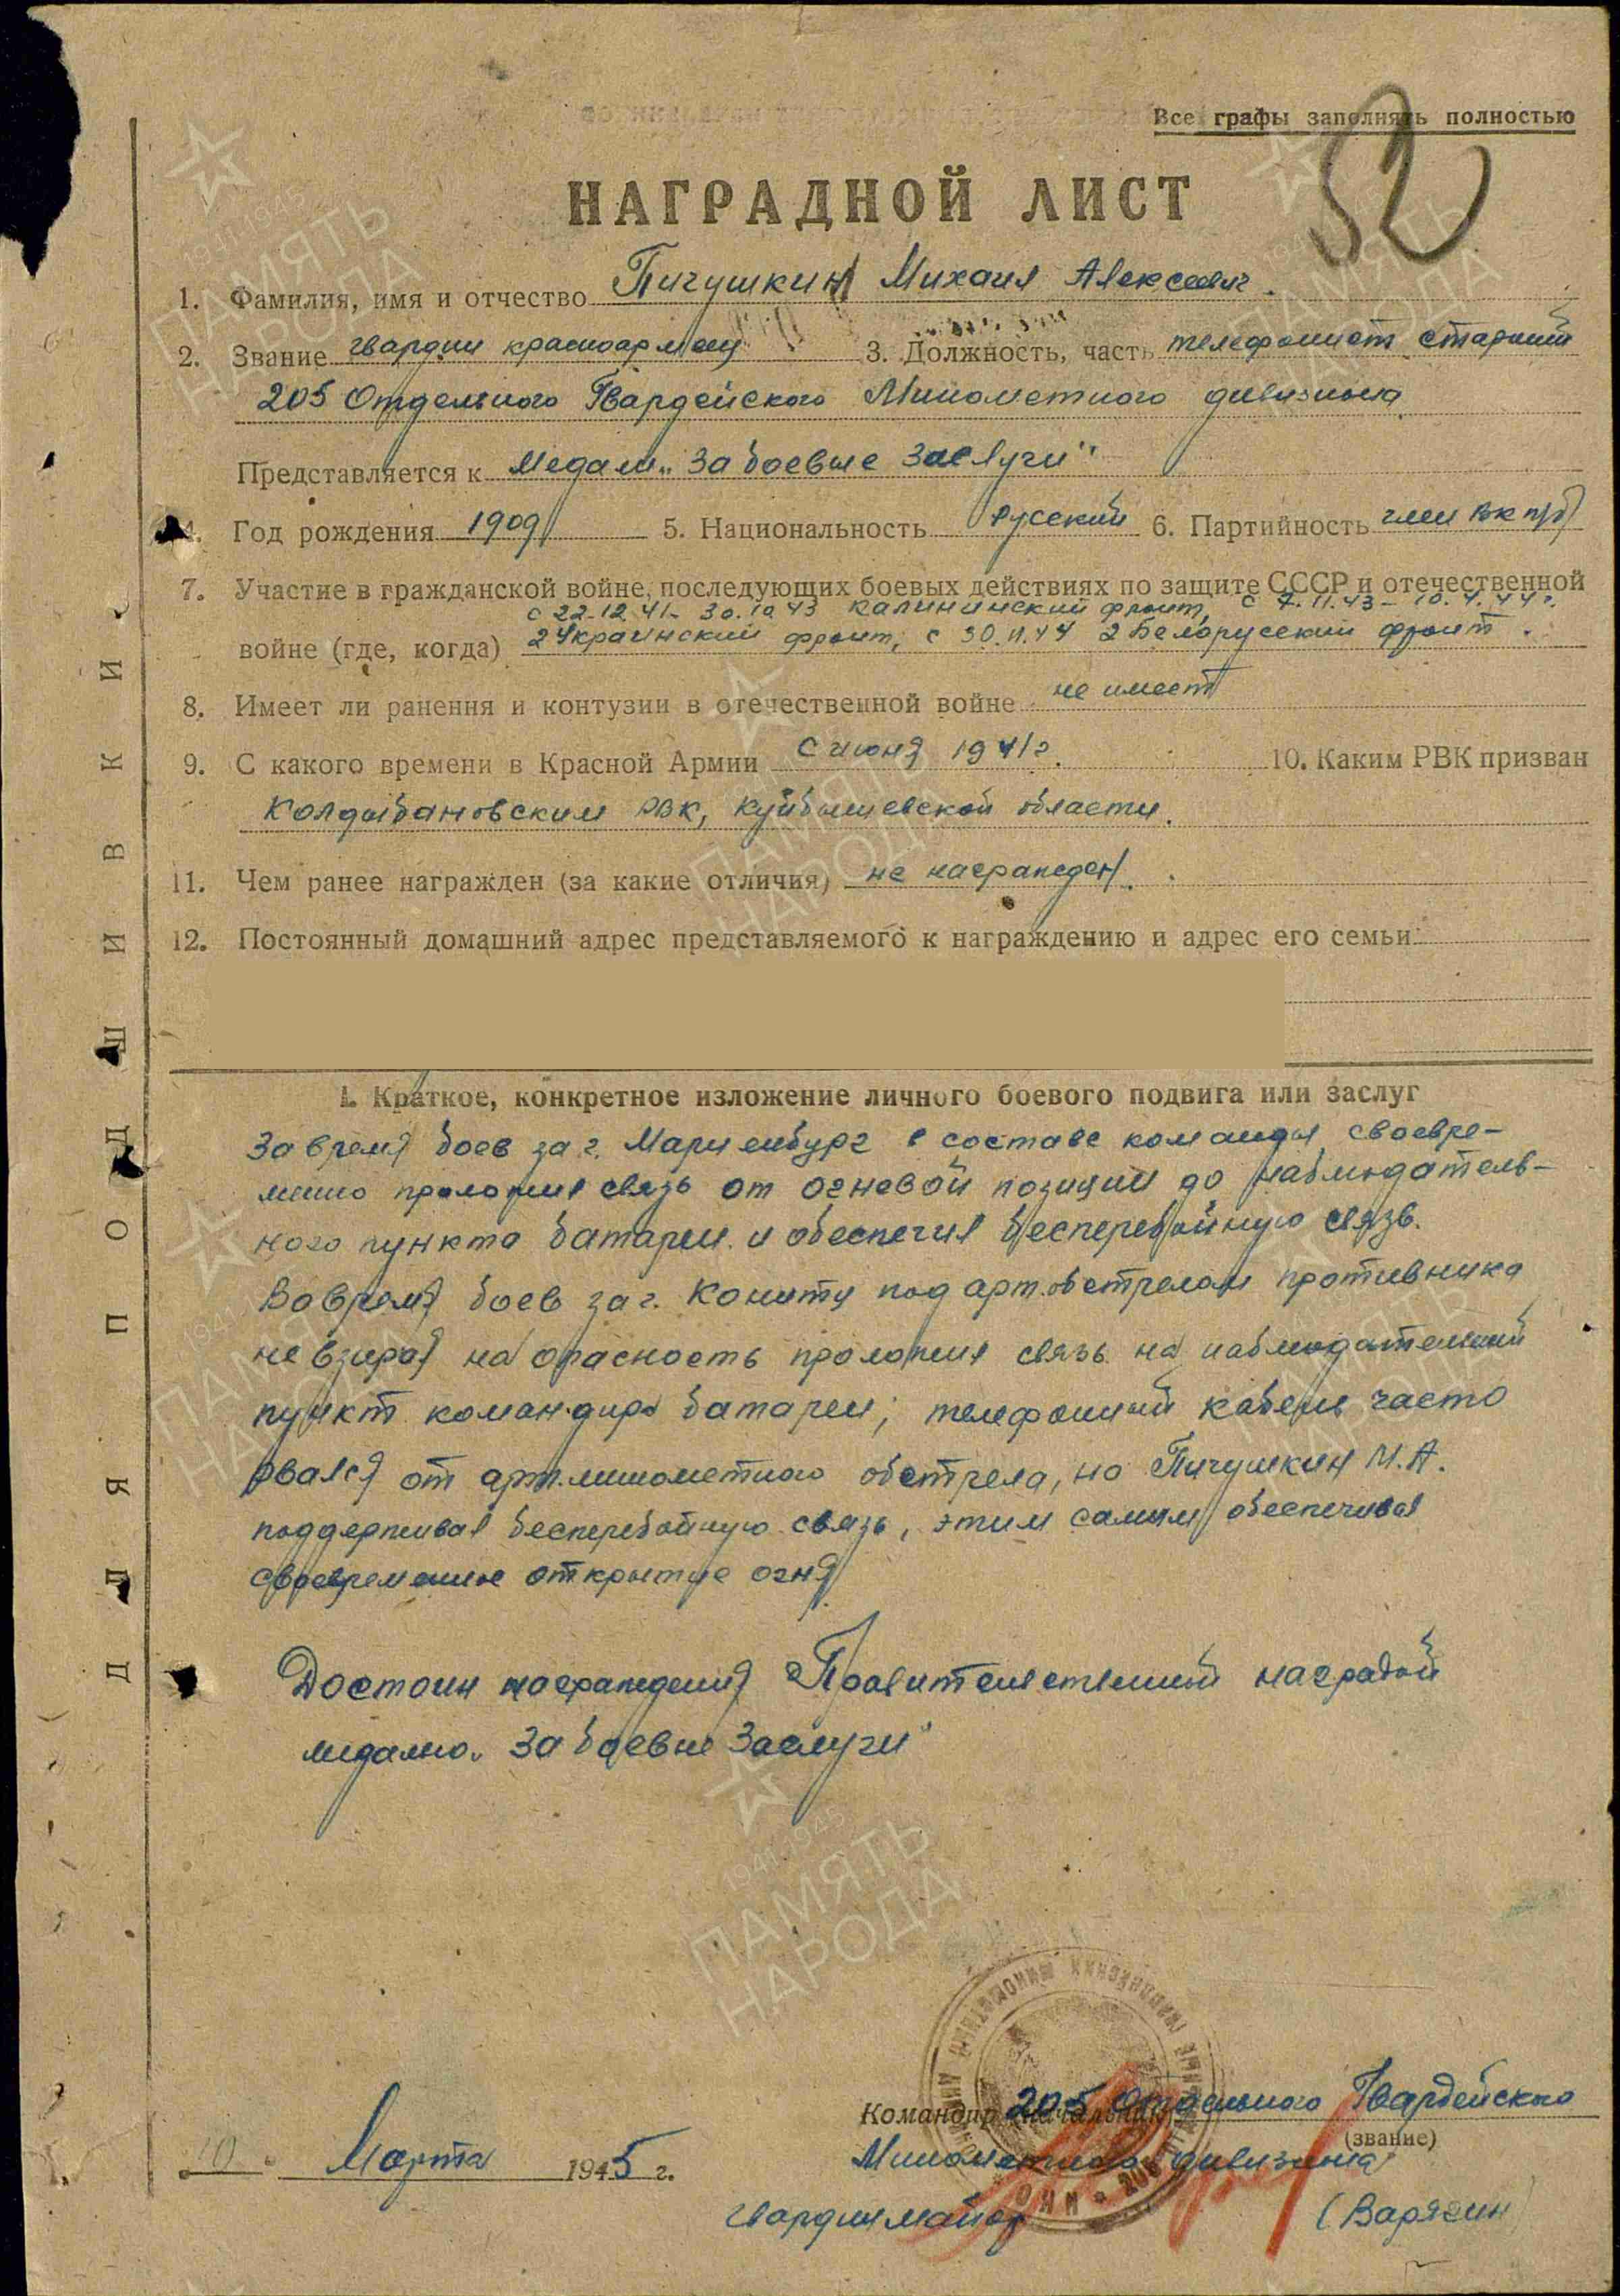 Все графы заполнять полностью
52
НАГРАДНОЙ ЛИСТ
1. Фамилия, имя и отчество Пичушкин Михаил Алексеевич.
2. Звание гвардии красноармеец 3. Должность, часть телефонист старший
205 Отдельного Гвардейского Минометного дивизиона
Представляется к медали „За боевые заслуги"
4. Год рождения 1909 5. Национальность Русский 6. Партийность член ВКП/б/
7. Участие в гражданской войне, последующих боевых действиях по защите СССР и отечественной
с 22.12.41- 30.10.43 Калининский фронт, с 7.11.43 - 10.4.44 г.
войне (где, когда) 2 Украинский фронт, с 30.11.44 2 Белорусский фронт.
8. Имеет ли ранения и контузии в отечественной войне не имеет
9. С какого времени в Красной Армии с июня 1941 г. 10. Каким РВК призван
Колдыбановским РВК, Куйбышевской области.
11. Чем ранее награжден (за какие отличия) не награжден.
12. Постоянный домашний адрес представляемого к награждению и адрес его семьи
I. Краткое, конкретное изложение личного боевого подвига или заслуг
За время боев за г. Мариенбург в составе команды своевре-
менно проложил связь от огневой позиции до наблюдатель-
ного пункта батареи и обеспечил бесперебойную связь.
Во время боев за г. Кониту под арт.обстрелом противника
не взирая на опасность проложил связь на наблюдательный
пункт командира батареи; телефонный кабель часто
рвался от арт.минометного обстрела, но Пичушкин М.А.
поддерживал бесперебойную связь, этим самым обеспечивал
своевременное открытие огня.
Достоин награждения Правительственной наградой
медалью „За боевые заслуги"
Командир (начальник) 205 Отдельного Гвардейского
(звание)
10 Марта 1945 г.
Минометного дивизиона
гвардии майор (Варягин)
ДЛЯ ПОДШИВКИ
1941-1945
ПАМЯТЬ
НАРОДА